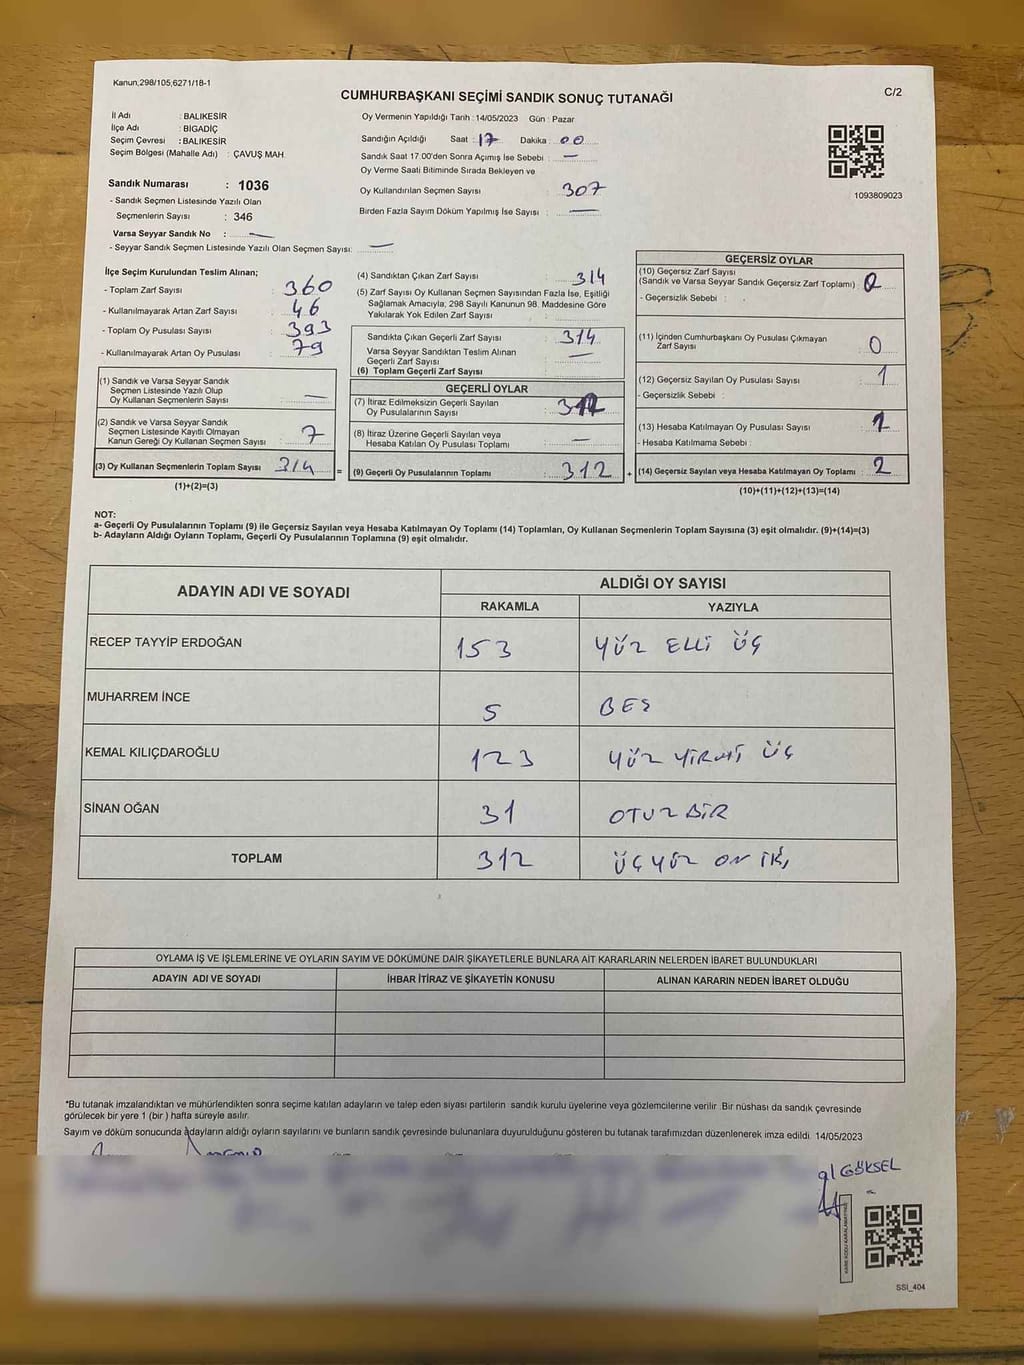 Kanun;298/105;6271/18-1
CUMHURBAŞKANI SEÇİMİ SANDIK SONUÇ TUTANAĞI
C/2
İl Adı : BALIKESİR
İlçe Adı : BİGADİÇ
Seçim Çevresi : BALIKESİR
Seçim Bölgesi (Mahalle Adı) : ÇAVUŞ MAH.
Sandık Numarası : 1036
- Sandık Seçmen Listesinde Yazılı Olan
Seçmenlerin Sayısı : 346
Varsa Seyyar Sandık No : —
- Seyyar Sandık Seçmen Listesinde Yazılı Olan Seçmen Sayısı: —
Oy Vermenin Yapıldığı Tarih : 14/05/2023 Gün : Pazar
Sandığın Açıldığı Saat : 17 Dakika : 00
Sandık Saat 17.00'den Sonra Açımış İse Sebebi : —
Oy Verme Saati Bitiminde Sırada Bekleyen ve
Oy Kullandırılan Seçmen Sayısı : 307
Birden Fazla Sayım Döküm Yapılmış İse Sayısı : —
1093809023
İlçe Seçim Kurulundan Teslim Alınan;
- Toplam Zarf Sayısı : 360
- Kullanılmayarak Artan Zarf Sayısı : 46
- Toplam Oy Pusulası Sayısı : 393
- Kullanılmayarak Artan Oy Pusulası : 79
(1) Sandık ve Varsa Seyyar Sandık
Seçmen Listesinde Yazılı Olup
Oy Kullanan Seçmenlerin Sayısı : —
(2) Sandık ve Varsa Seyyar Sandık
Seçmen Listesinde Kayıtlı Olmayan
Kanun Gereği Oy Kullanan Seçmen Sayısı : 7
(3) Oy Kullanan Seçmenlerin Toplam Sayısı : 314
(1)+(2)=(3)
(4) Sandıktan Çıkan Zarf Sayısı : 314
(5) Zarf Sayısı Oy Kullanan Seçmen Sayısından Fazla İse, Eşitliği
Sağlamak Amacıyla; 298 Sayılı Kanunun 98. Maddesine Göre
Yakılarak Yok Edilen Zarf Sayısı :
Sandıkta Çıkan Geçerli Zarf Sayısı : 314
Varsa Seyyar Sandıktan Teslim Alınan
Geçerli Zarf Sayısı : —
(6) Toplam Geçerli Zarf Sayısı :
=
GEÇERLİ OYLAR
(7) İtiraz Edilmeksizin Geçerli Sayılan
Oy Pusulalarının Sayısı : 312
(8) İtiraz Üzerine Geçerli Sayılan veya
Hesaba Katılan Oy Pusulası Toplamı : —
(9) Geçerli Oy Pusulalarının Toplamı : 312
+
GEÇERSİZ OYLAR
(10) Geçersiz Zarf Sayısı
(Sandık ve Varsa Seyyar Sandık Geçersiz Zarf Toplamı) : 0
- Geçersizlik Sebebi :
(11) İçinden Cumhurbaşkanı Oy Pusulası Çıkmayan
Zarf Sayısı : 0
(12) Geçersiz Sayılan Oy Pusulası Sayısı : 1
- Geçersizlik Sebebi :
(13) Hesaba Katılmayan Oy Pusulası Sayısı : 1
- Hesaba Katılmama Sebebi :
(14) Geçersiz Sayılan veya Hesaba Katılmayan Oy Toplamı : 2
(10)+(11)+(12)+(13)=(14)
NOT:
a- Geçerli Oy Pusulalarının Toplamı (9) ile Geçersiz Sayılan veya Hesaba Katılmayan Oy Toplamı (14) Toplamları, Oy Kullanan Seçmenlerin Toplam Sayısına (3) eşit olmalıdır. (9)+(14)=(3)
b- Adayların Aldığı Oyların Toplamı, Geçerli Oy Pusulalarının Toplamına (9) eşit olmalıdır.
ADAYIN ADI VE SOYADI ALDIĞI OY SAYISI
RAKAMLA YAZIYLA
RECEP TAYYİP ERDOĞAN 153 YÜZ ELLİ ÜÇ
MUHARREM İNCE 5 BEŞ
KEMAL KILIÇDAROĞLU 123 YÜZ YİRMİ ÜÇ
SİNAN OĞAN 31 OTUZ BİR
TOPLAM 312 ÜÇ YÜZ ON İKİ
OYLAMA İŞ VE İŞLEMLERİNE VE OYLARIN SAYIM VE DÖKÜMÜNE DAİR ŞİKAYETLERLE BUNLARA AİT KARARLARIN NELERDEN İBARET BULUNDUKLARI
ADAYIN ADI VE SOYADI İHBAR İTİRAZ VE ŞİKAYETİN KONUSU ALINAN KARARIN NEDEN İBARET OLDUĞU
*Bu tutanak imzalandıktan ve mühürlendikten sonra seçime katılan adayların ve talep eden siyasi partilerin sandık kurulu üyelerine veya gözlemcilerine verilir. Bir nüshası da sandık çevresinde
görülecek bir yere 1 (bir ) hafta süreyle asılır.
Sayım ve döküm sonucunda adayların aldığı oyların sayılarını ve bunların sandık çevresinde bulunanlara duyurulduğunu gösteren bu tutanak tarafımızdan düzenlenerek imza edildi. 14/05/2023
GÖKSEL
KARE KODU KARALAMAYINIZ
SSI_404